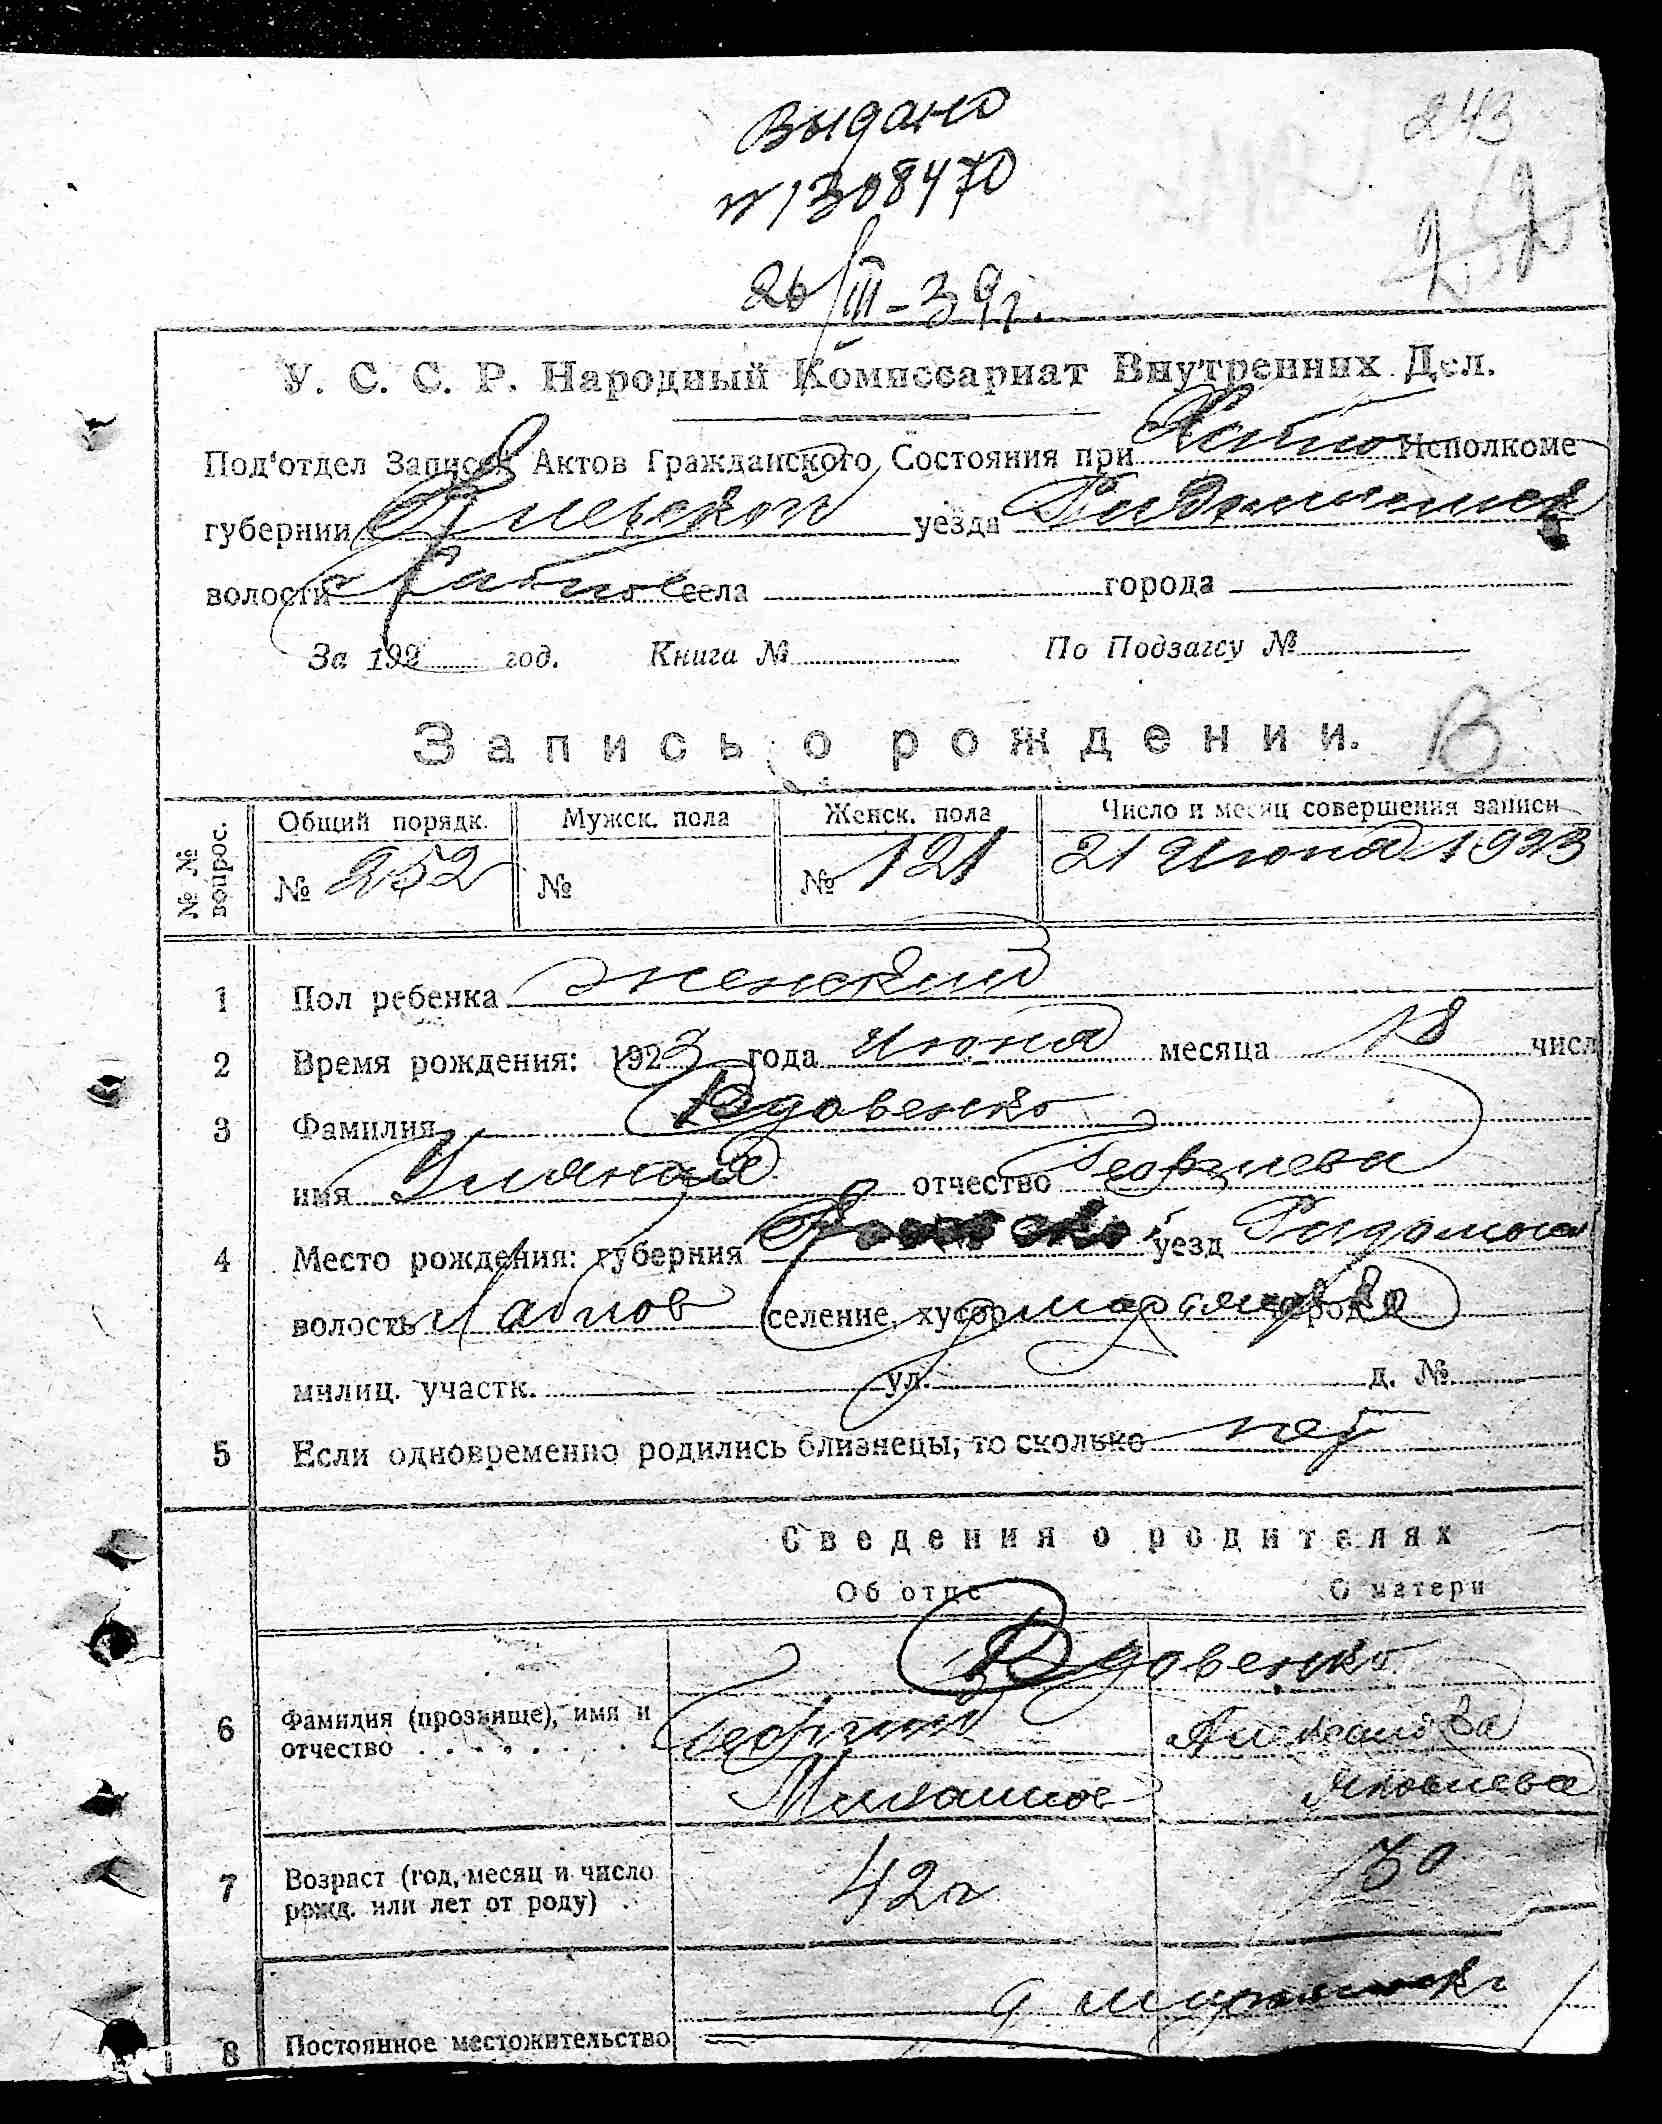 Выдано
№ 1308470
26/III-39г.
243
252
У. С. С. Р. Народный Комиссариат Внутренних Дел.
Под'отдел Записей Актов Гражданского Состояния при Исполкоме
губернии Киевской уезда
волости села города
За 192 год. Книга № По Подзагсу №
Запись о рождении.
В
№№ вопрос.
Общий порядк. Мужск. пола Женск. пола Число и месяц совершения записи
№ 252 № № 121 21 Июня 1923
1 Пол ребенка женский
2 Время рождения: 1923 года Июня месяца 18 числ
3 Фамилия Вдовенко
имя Уляния отчество Георгиева
4 Место рождения: губерния уезд Радомысл
волость селение, хутор город
милиц. участк. ул. д. №
5 Если одновременно родились близнецы, то сколько нет
Сведения о родителях
Об отце О матери
Вдовенко
6 Фамилия (прозвище), имя и отчество Георгий Александра
Яковлева
7 Возраст (год, месяц и число рожд. или лет от роду) 42 г 30
8 Постоянное местожительство